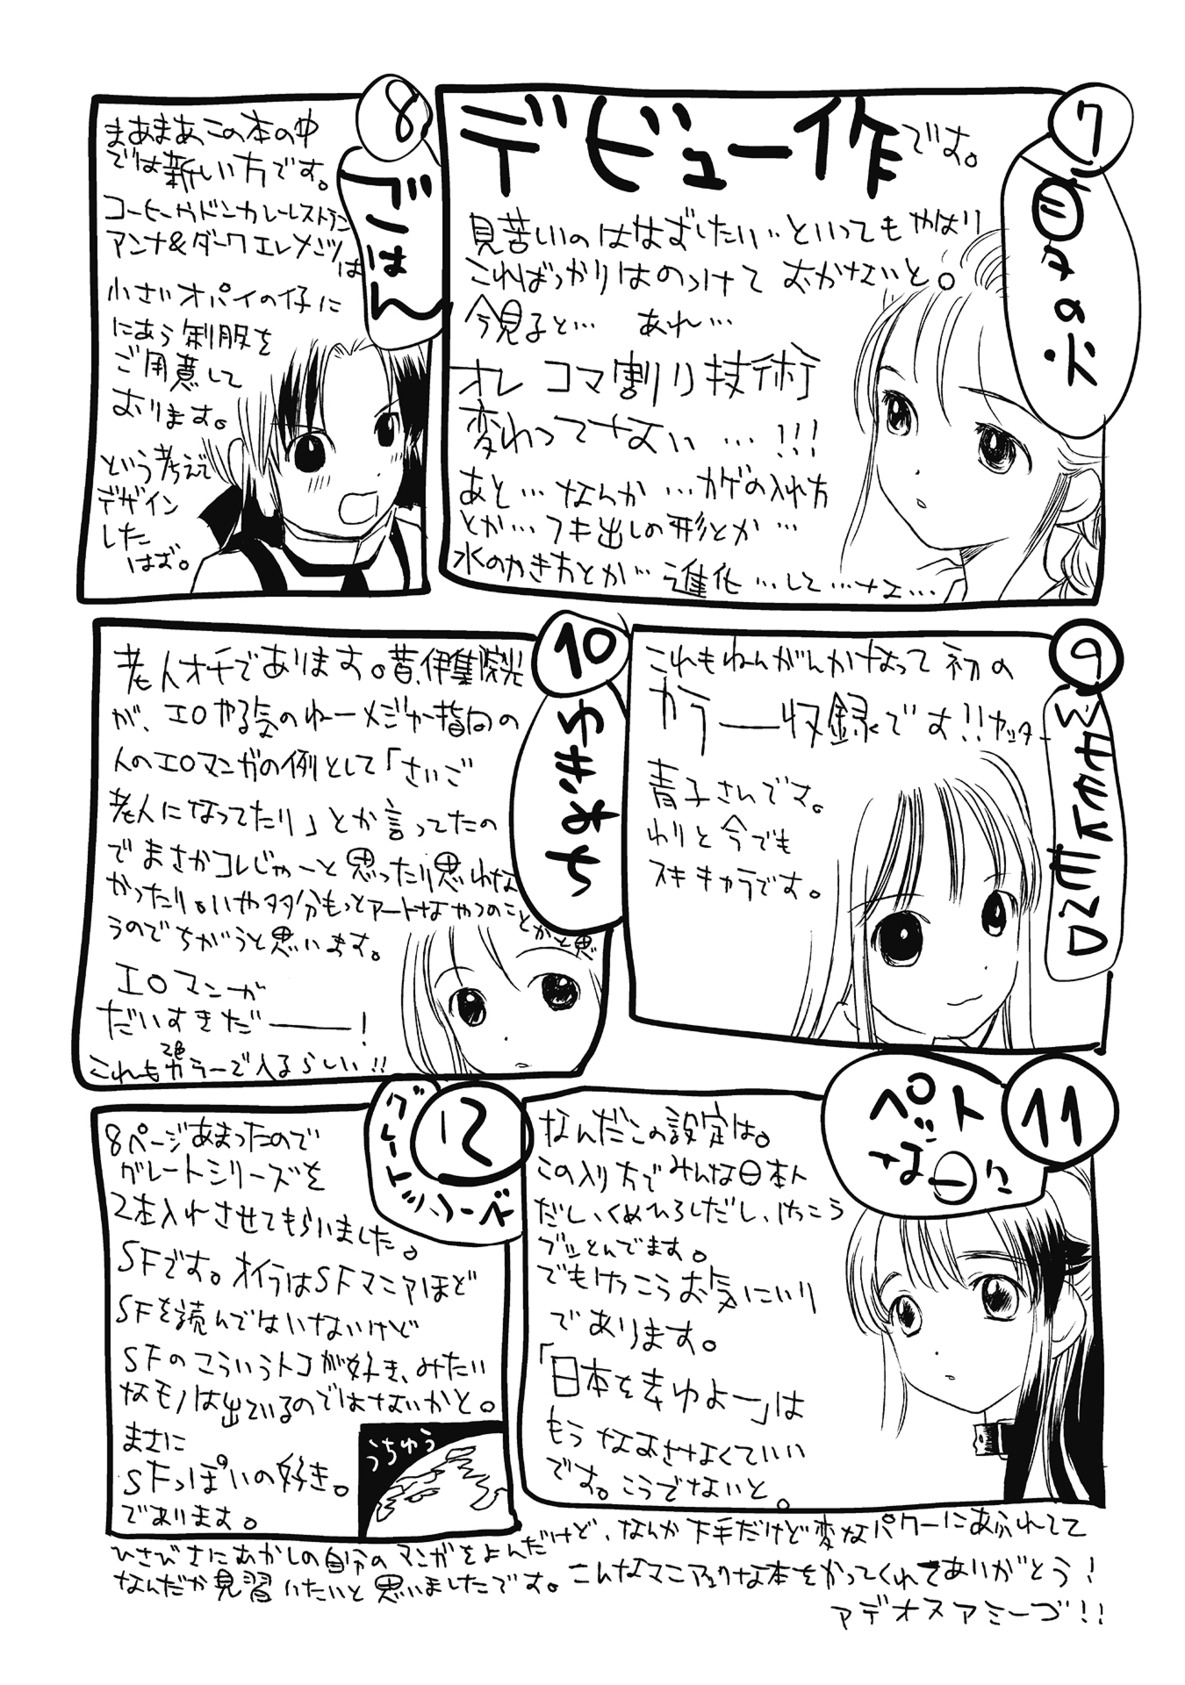 7
の火
デビュー作です。
見苦しいのははずしたい…といってもやはり
こればっかりはのっけておかないと。
今見ると… あれ…
オレ コマ割り技術
変わってない…!!!
あと…なんか…カゲの入れ方
とか…フキ出しの形とか…
水のかき方とか…進化…して…ナエ…
8
ごはん
まあまあこの本の中
では新しい方です。
コーヒーやドンカレーレストラン
アンナ&ダークエレメンツは
小さいオパイの仔に
にあう制服を
ご用意して
おります。
という考えで
デザイン
した
はず。
9
これもねんがんかなって初の
カラー収録です!!ヤッター
青子さんです。
わりと今でも
スキキャラです。
10
ゆきみち
老人オチであります。昔、伊集院光
が、エロやる気のねーメジャー指向の
人のエロマンガの例として「さいご
老人になってたり」とか言ってたの
でまさかコレじゃーと思ったり思わな
かったり。いや多分もっとアートなやつのことかと思
うのでちがうと思います。
エロマンガ
だいすきだ――!
これも2色カラーで入るらしい!!
11
ペット
な日々
なんだこの設定は。
この入り方でみんな日本人
だし、くめひろしだし、けっこう
ブッとんでます。
でもけっこうお気にいり
であります。
「日本を去ゆよー」は
もうなおさなくていい
です。こうでないと。
12
グレート
8ページあまったので
グレートシリーズを
2本入れさせてもらいました。
SFです。オイラはSFマニアほど
SFを読んではいないけど
SFのこういうトコが好き、みたい
なモノは出ているのではないかと。
まさに
SFっぽいの好き。
であります。
うちゅう
ひさびさにむかしの自分のマンガをよんだけど、なんか下手だけど変なパワーにあふれてて
なんだか見習いたいと思いましたです。こんなマニアックな本をかってくれてありがとう!
アデオスアミーゴ!!